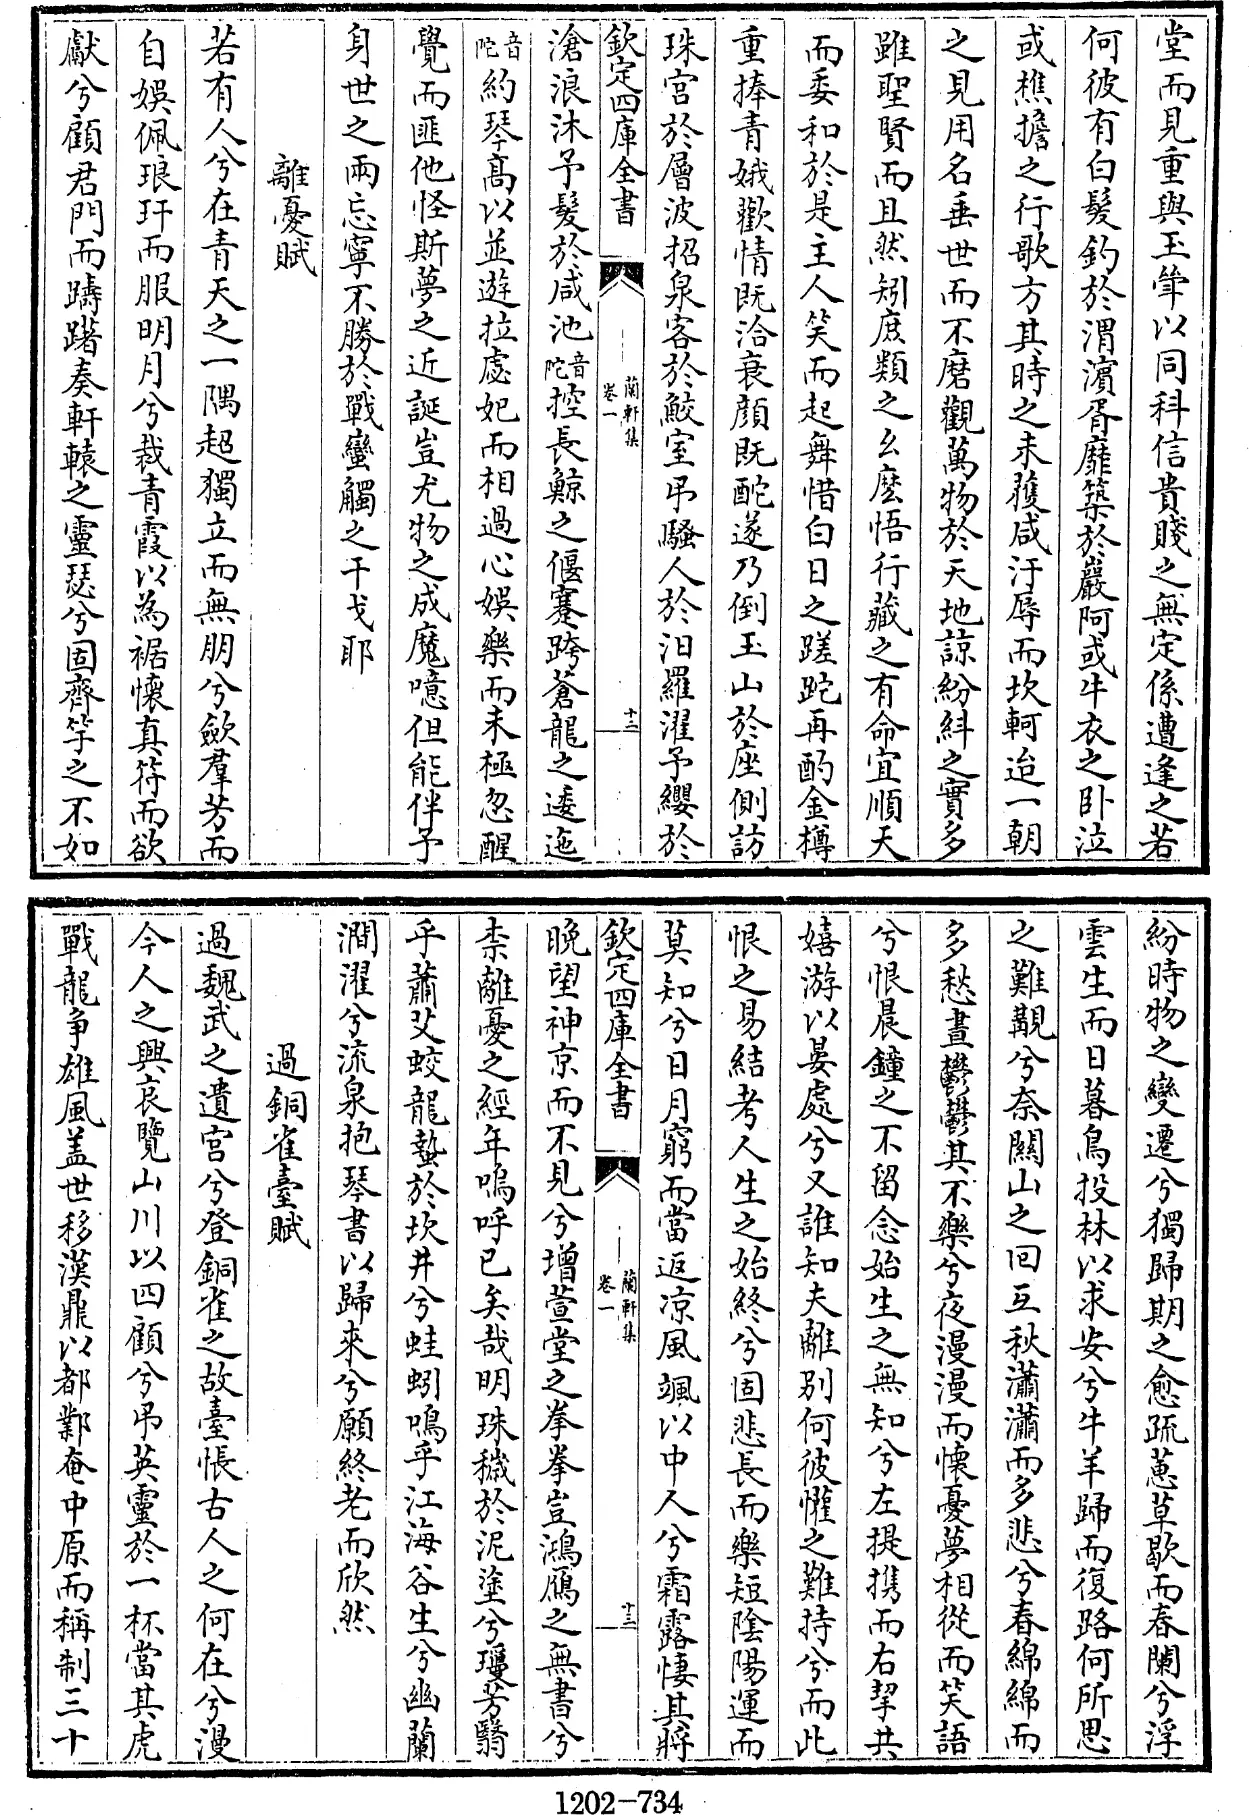 堂而見重與玉聿以同科信貴賤之無定係遭逢之若
何彼有白髮釣於渭濱胥靡築於巖阿或牛衣之卧泣
或樵擔之行歌方其時之未獲咸汙辱而坎軻迨一朝
之見用名垂世而不磨觀萬物於天地諒紛糾之實多
雖聖賢而且然矧庶類之幺麽悟行藏之有命宜順天
而委和於是主人笑而起舞惜白日之蹉跎再酌金樽
重捧青娥歡情既洽衰顔既酡遂乃倒玉山於座側訪
珠宫於層波招泉客於鮫室弔騷人於汨羅濯予纓於
欽定四庫全書
蘭軒集
卷一
十二
滄浪沐予髮於咸池音陀控長鯨之偃蹇跨蒼龍之逶迤
音陀約琴高以並遊拉虙妃而相過心娱樂而未極忽醒
覺而匪他怪斯夢之近誕豈尤物之成魔噫但能伴予
身世之兩忘寧不勝於戰蠻觸之干戈耶
離憂賦
若有人兮在青天之一隅超獨立而無朋兮歛羣芳而
自娱佩琅玕而服明月兮裁青霞以為裾懷真符而欲
獻兮顧君門而躊躇奏軒轅之靈瑟兮固齊竽之不如
紛時物之變遷兮獨歸期之愈疏蕙草歇而春闌兮浮
雲生而日暮鳥投林以求安兮牛羊歸而復路何所思
之難覯兮奈關山之回互秋瀟瀟而多悲兮春綿綿而
多愁晝鬱鬱其不樂兮夜漫漫而懷憂夢相從而笑語
兮恨晨鐘之不留念始生之無知兮左提携而右挈共
嬉游以晏處兮又誰知夫離别何彼懽之難持兮而此
恨之易結考人生之始終兮固悲長而樂短陰陽運而
莫知兮日月窮而當返凉風颯以中人兮霜露悽其將
欽定四庫全書
蘭軒集
卷一
十三
晚望神京而不見兮增萱堂之拳拳豈鴻鴈之無書兮
柰離憂之經年嗚呼已矣哉明珠穢於泥塗兮瓊芳翳
乎蕭艾蛟龍蟄於坎井兮蛙蚓鳴乎江海谷生兮幽蘭
澗濯兮流泉抱琴書以歸來兮願終老而欣然
過銅雀臺賦
過魏武之遺宫兮登銅雀之故臺悵古人之何在兮漫
今人之興哀覽山川以四顧兮弔英靈於一杯當其虎
戰龍爭雄風盖世移漢鼎以都鄴奄中原而稱制三十
1202-734